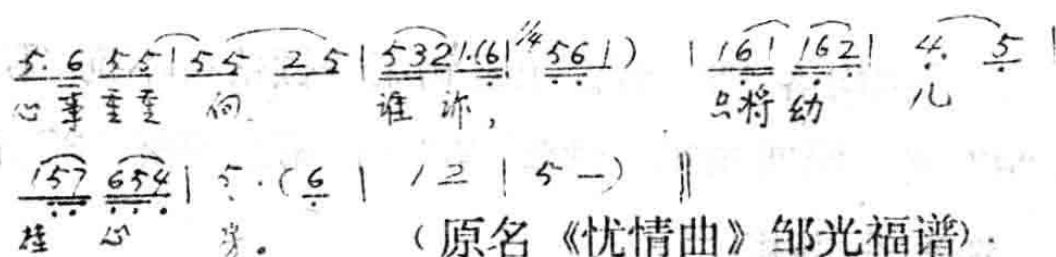 5. 6 5 5 | 5 5 2 5 | 5 3 2 1. (6 | 1/4 5 6 1 ) | 1 6 1 1 6 2 | 4. 5 |
心事重重 向 谁 诉， 只将 幼 儿
1 5 7 6 5 4 | 5 . ( 6 | 1 2 | 5 — ) ‖
挂 心
（原名《忧情曲》邹光福谱）.